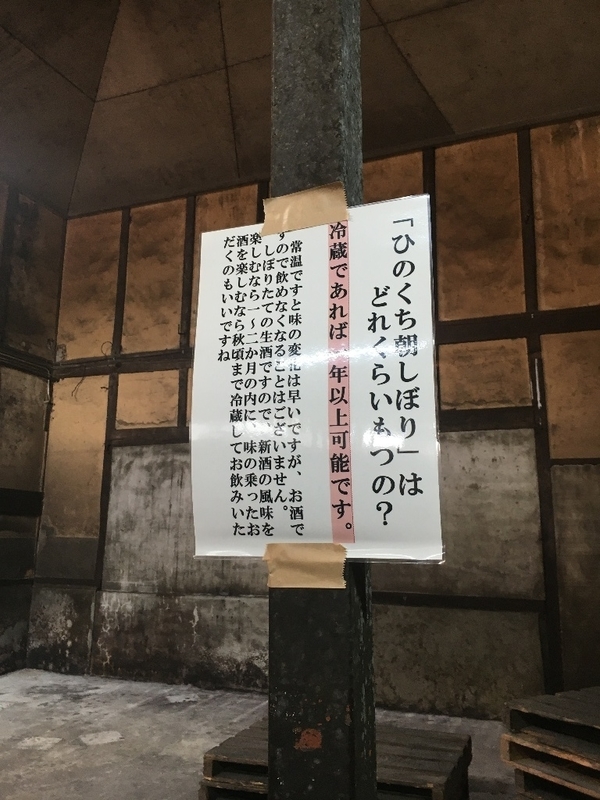 「ひのくち朝しぼり」は
どれくらいもつの？
冷蔵であれば一年以上可能です。
常温ですと味の変化は早いですが、お酒で
すので飲めなくなることはございません。
しぼりたての生酒ですので、新酒の風味を
楽しむなら一～二か月の内に、味の乗ったお
酒を楽しむなら秋頃まで冷蔵してお飲みいた
だくのもいいですね